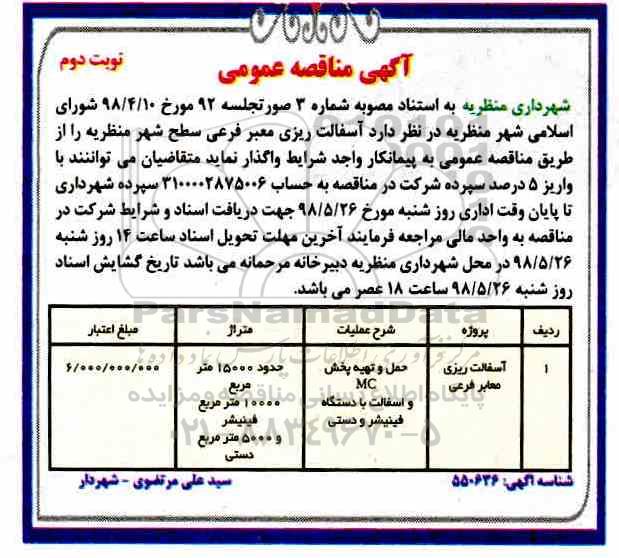 آگهی مناقصه عمومی
نوبت دوم
شهرداری منظریه به استناد مصوبه شماره ۳ صورتجلسه ۹۲ مورخ ۹۸/۴/۱۰ شورای
اسلامی شهر منظریه در نظر دارد آسفالت ریزی معبر فرعی سطح شهر منظریه را از
طریق مناقصه عمومی به پیمانکار واجد شرایط واگذار نماید متقاضیان می توانند با
واریز ۵ درصد سپرده شرکت در مناقصه به حساب ۳۱۰۰۰۰۲۸۷۵۰۰۶ سپرده شهرداری
تا پایان وقت اداری روز شنبه مورخ ۹۸/۵/۲۶ جهت دریافت اسناد و شرایط شرکت در
مناقصه به واحد مالی مراجعه فرمایند آخرین مهلت تحویل اسناد ساعت ۱۴ روز شنبه
۹۸/۵/۲۶ در محل شهرداری منظریه دبیرخانه مرحمانه می باشد تاریخ گشایش اسناد
روز شنبه ۹۸/۵/۲۶ ساعت ۱۸ عصر می باشد.
ردیف پروژه شرح عملیات متراژ مبلغ اعتبار
۱ آسفالت ریزی حمل و تهیه پخش حدود ۱۵۰۰۰ متر ۶/۰۰۰/۰۰۰/۰۰۰
معابر فرعی MC مربع
و اسفالت با دستگاه ۱۰۰۰۰ متر مربع
فینیشر و دستی فینیشر
و ۵۰۰۰ متر مربع
دستی
شناسه آگهی: ۵۵۰۶۳۶ سید علی مرتضوی - شهردار
ParsNamadData
پایگاه اطلاع رسانی مناقصه و مزایده
۰۲۱-۸۸۳۴۹۶۷۰-۵